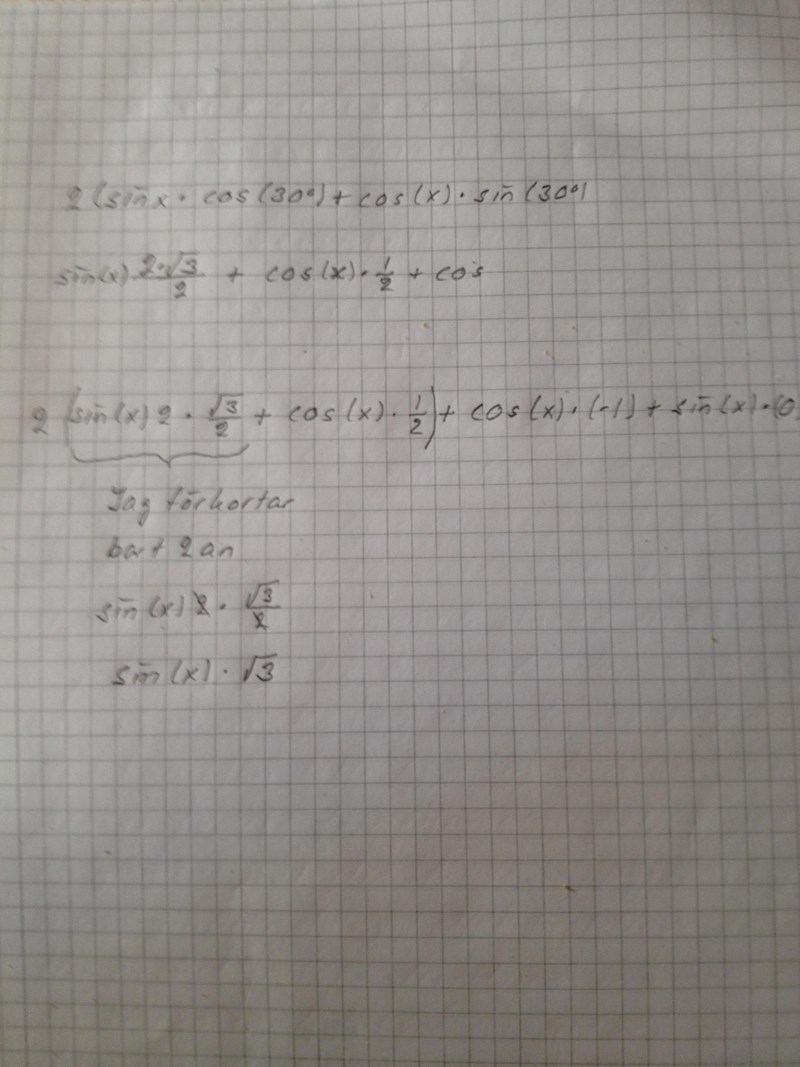 2 (sin x · cos (30°) + cos (x) · sin (30°)
sin(x) 2·√3/2 + cos(x) · 1/2 + cos
2 (sin(x) 2 · √3/2 + cos(x) · 1/2) + cos(x) · (-1) + sin(x) · (0
Jag förkortar
bort 2 an
sin(x) 2 · √3/2
sin(x) · √3